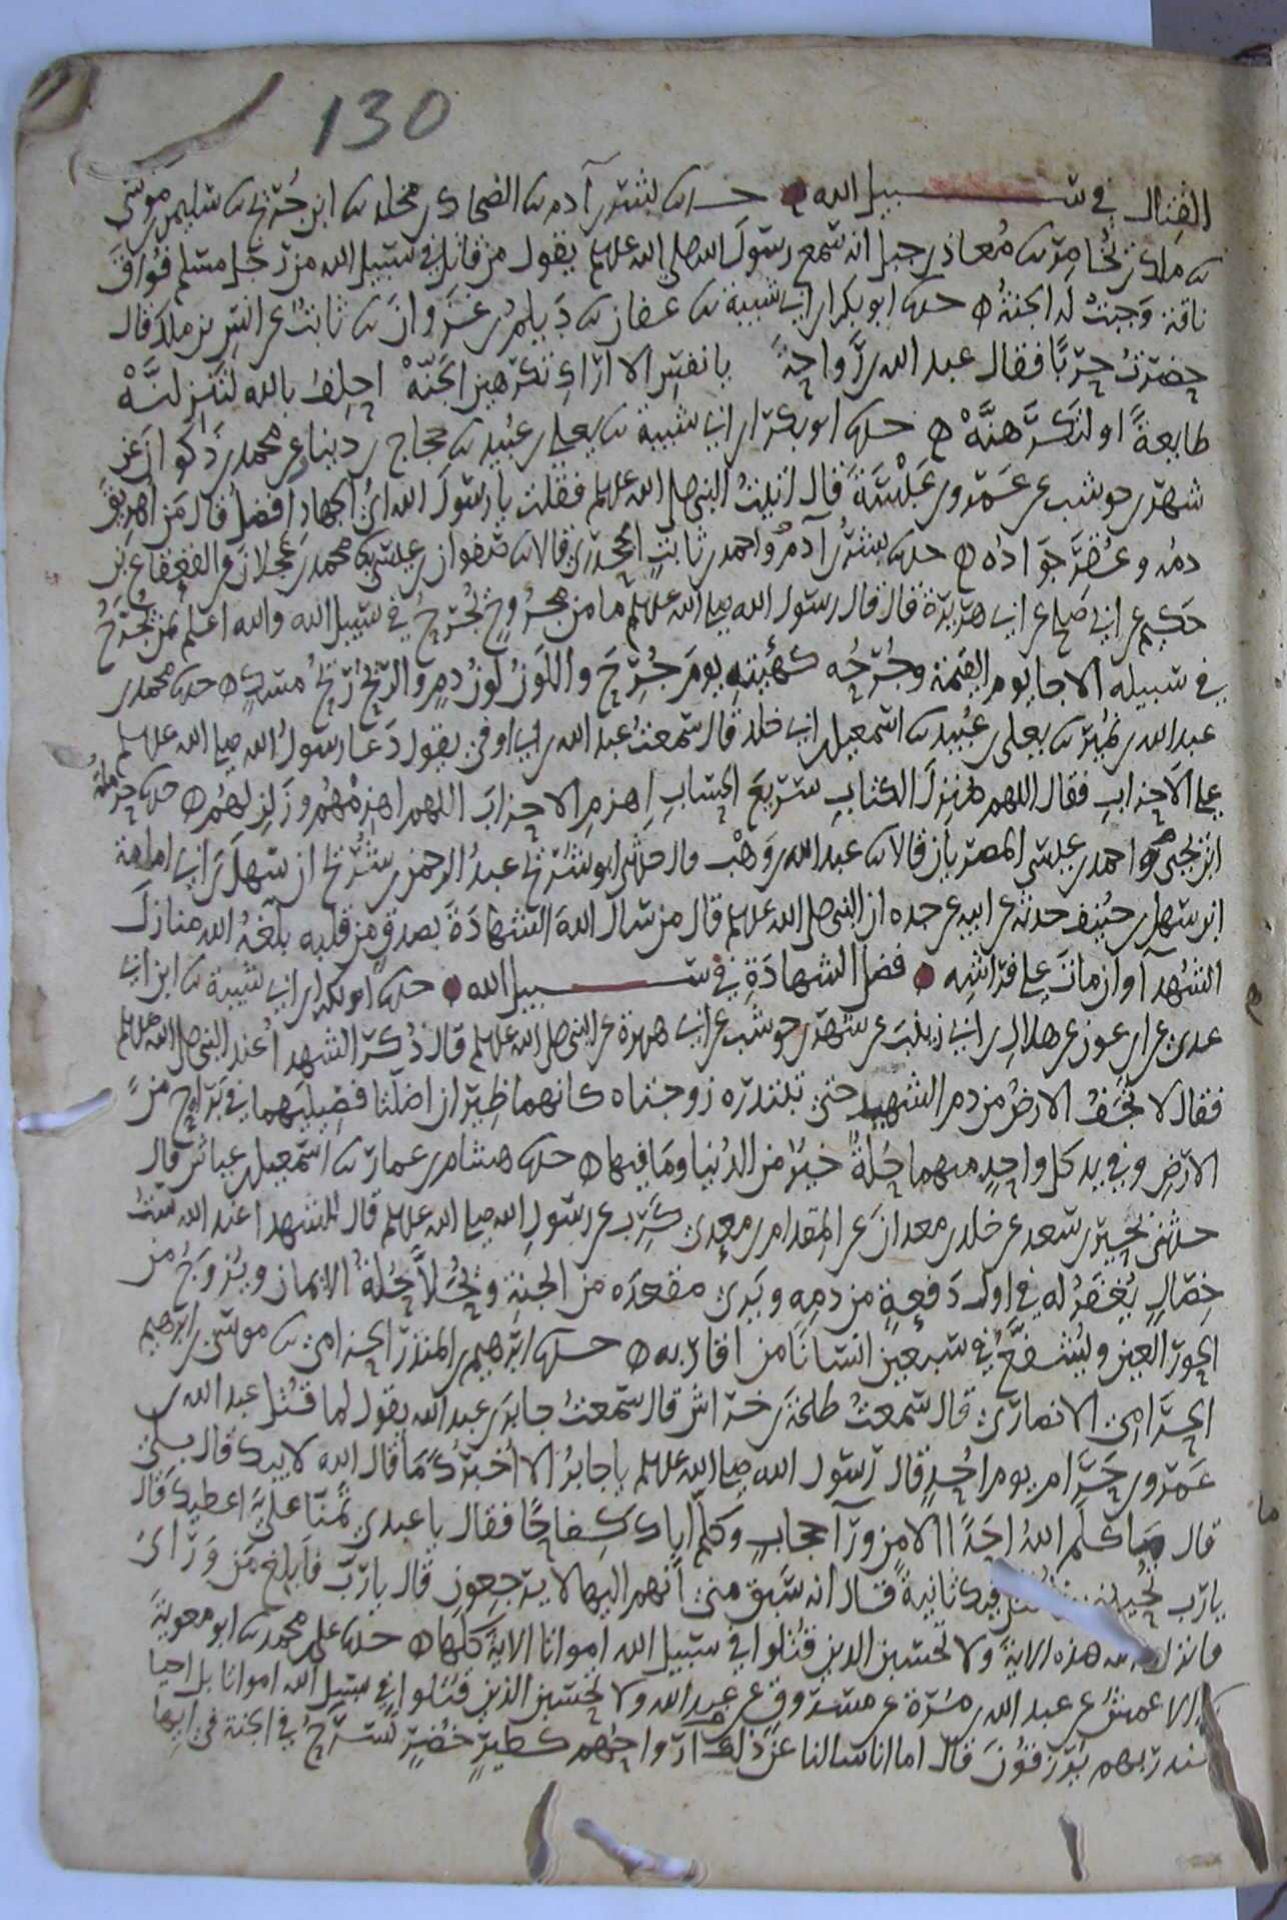 130
القتال في سبيل الله حدثنا بشر بن آدم ثنا الضحاك بن مخلد ثنا ابن جريج ثنا سليمن بن موسى
ثنا ملك بن يخامر ثنا معاذ بن جبل انه سمع رسول الله صلى الله عليه وسلم يقول من قاتل في سبيل الله من رجل مسلم فواق
ناقة وجبت له الجنة حدثنا ابو بكر بن ابي شيبة ثنا عفان ثنا ديلم بن غزوان ثنا ثابت عن انس بن ملك قال
حضرت حربا فقال عبد الله بن رواحة يا نفس الا اراك تكرهين الجنه احلف بالله لتنزلنه
طايعة او لتكرهنه حدثنا ابو بكر بن ابي شيبة ثنا يعلى بن عبيد ثنا حجاج بن دينار عن محمد بن ذكوان عن
شهر بن حوشب عن عمرو بن عبسة قال اتيت النبي صلى الله عليه وسلم فقلت يا رسول الله اي الجهاد افضل قال من اهريق
دمه وعقر جواده حدثنا بشر بن آدم واحمد بن ثابت الجحدري قالا ثنا صفوان بن عيسى ثنا محمد بن عجلان عن القعقاع بن
حكيم عن ابي صالح عن ابي هريرة قال قال رسول الله صلى الله عليه وسلم ما من مجروح يجرح في سبيل الله والله اعلم بمن يجرح
في سبيله الا جا يوم القيمة وجرحه كهيئته يوم جرح واللون لون دم والريح ريح مسك حدثنا محمد بن
عبد الله بن نمير ثنا يعلى بن عبيد ثنا اسمعيل بن ابي خلد قال سمعت عبد الله بن ابي اوفى يقول دعا رسول الله صلى الله عليه وسلم
على الاحزاب فقال اللهم منزل الكتاب سريع الحساب اهزم الاحزاب اللهم اهزمهم وزلزلهم حدثنا حرملة
ابن يحيى واحمد بن عيسى المصريان قالا ثنا عبد الله بن وهب قال حدثني ابو شريح عبد الرحمن بن شريح ان سهل بن ابي امامة
ابن سهل بن حنيف حدثه عن ابيه عن جده ان النبي صلى الله عليه وسلم قال من سال الله الشهادة بصدق من قلبه بلغه الله منازل
الشهدآ وان مات على فراشه فضل الشهادة في سبيل الله حدثنا ابو بكر بن ابي شيبة ثنا ابن ابي
عدي عن ابن عون عن هلال بن ابي زينب عن شهر بن حوشب عن ابي هريرة عن النبي صلى الله عليه وسلم قال ذكر الشهدا عند النبي صلى الله عليه وسلم
فقال لا تجف الارض من دم الشهيد حتى تبتدره زوجتاه كانهما ظيران اضلتا فصيليهما في براح من
الارض وفي يد كل واحد منهما حلة خير من الدنيا وما فيها حدثنا هشام بن عمار ثنا اسمعيل بن عياش قال
حدثني بحير بن سعد عن خلد بن معدان عن المقدام بن معدي كرب عن رسول الله صلى الله عليه وسلم قال للشهيد عند الله ست
خصال يغفر له في اول دفعة من دمه ويرى مقعده من الجنة ويحلا حلة الايمان ويزوج من
الحور العين ويشفع في سبعين انسانا من اقاربه حدثنا ابرهيم بن المنذر الحزامي ثنا موسى بن ابرهيم
الحرامي الانصاري قال سمعت طلحة بن خراش قال سمعت جابر بن عبد الله يقول لما قتل عبد الله بن
عمرو بن حرام يوم احد قال رسول الله صلى الله عليه وسلم يا جابر الا اخبرك ما قال الله لابيك قال بلى
قال ما كلم الله احدا الا من ورآ حجاب وكلم اباك كفاحا فقال يا عبدي تمنا علي اعطيك قال
يا رب تحييني فاقتل فيك ثانية قال انه سبق مني انهم اليها لا يرجعون قال يا رب فابلغ من وراى
فانزل الله هذه الاية ولا تحسبن الذين قتلوا في سبيل الله امواتا الاية كلها حدثنا علي بن محمد ثنا ابو معوية
ثنا الاعمش عن عبد الله بن مرة عن مسروق عن عبد الله ولا تحسبن الذين قتلوا في سبيل الله امواتا بل احيا
عند ربهم يرزقون قال اما انا سالنا عن ذلك ارواحهم كطير خضر تسرح في الجنة في ايها